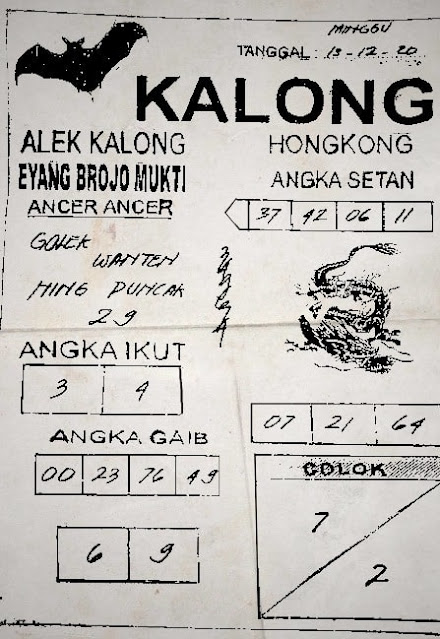 MINGGU
TANGGAL : 13-12-20
KALONG
ALEK KALONG
EYANG BROJO MUKTI
ANCER ANCER
GOLEK
WANTEN
MING PUNCAK
29
HONGKONG
ANGKA SETAN
37 42 06 11
ANGKA IKUT
3 4
ANGKA GAIB
00 23 76 49
6 9
07 21 64
COLOK
7
2